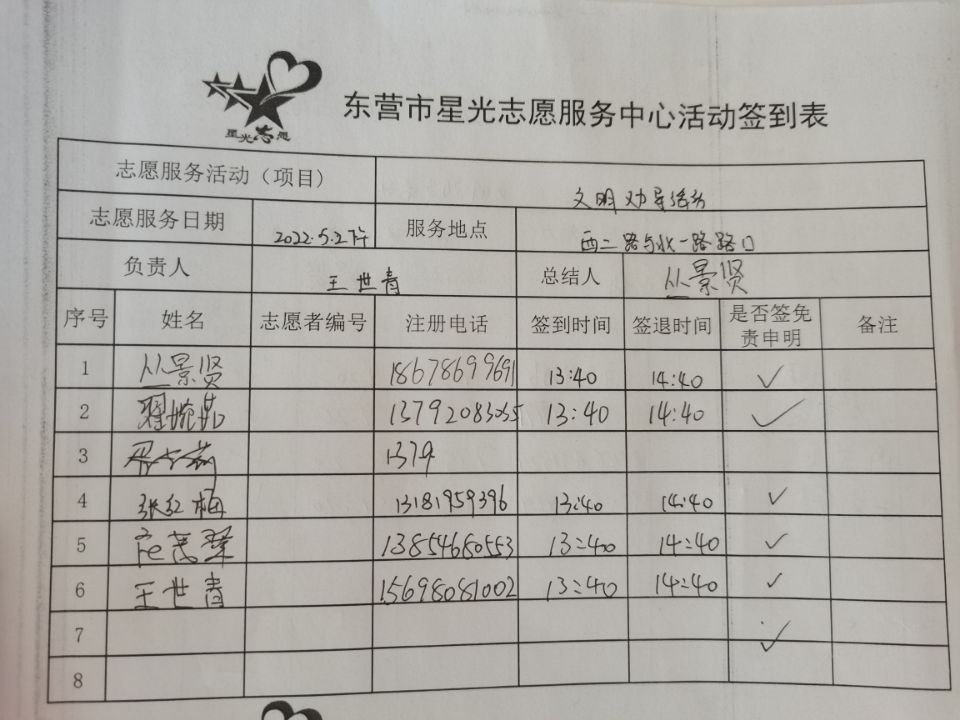 星光志愿
东营市星光志愿服务中心活动签到表
志愿服务活动（项目） 文明劝导活动
志愿服务日期 2022.5.2下午 服务地点 西二路与北一路路口
负责人 王世青 总结人 丛景贤
序号 姓名 志愿者编号 注册电话 签到时间 签退时间 是否签免责申明 备注
1 丛景贤 18678699691 13:40 14:40 ✓
2 13792083035 13:40 14:40 ✓
3 1379
4 张红梅 13181959396 13:40 14:40 ✓
5 13854680553 13:40 14:40 ✓
6 王世青 15698081002 13:40 14:40 ✓
7 ✓
8